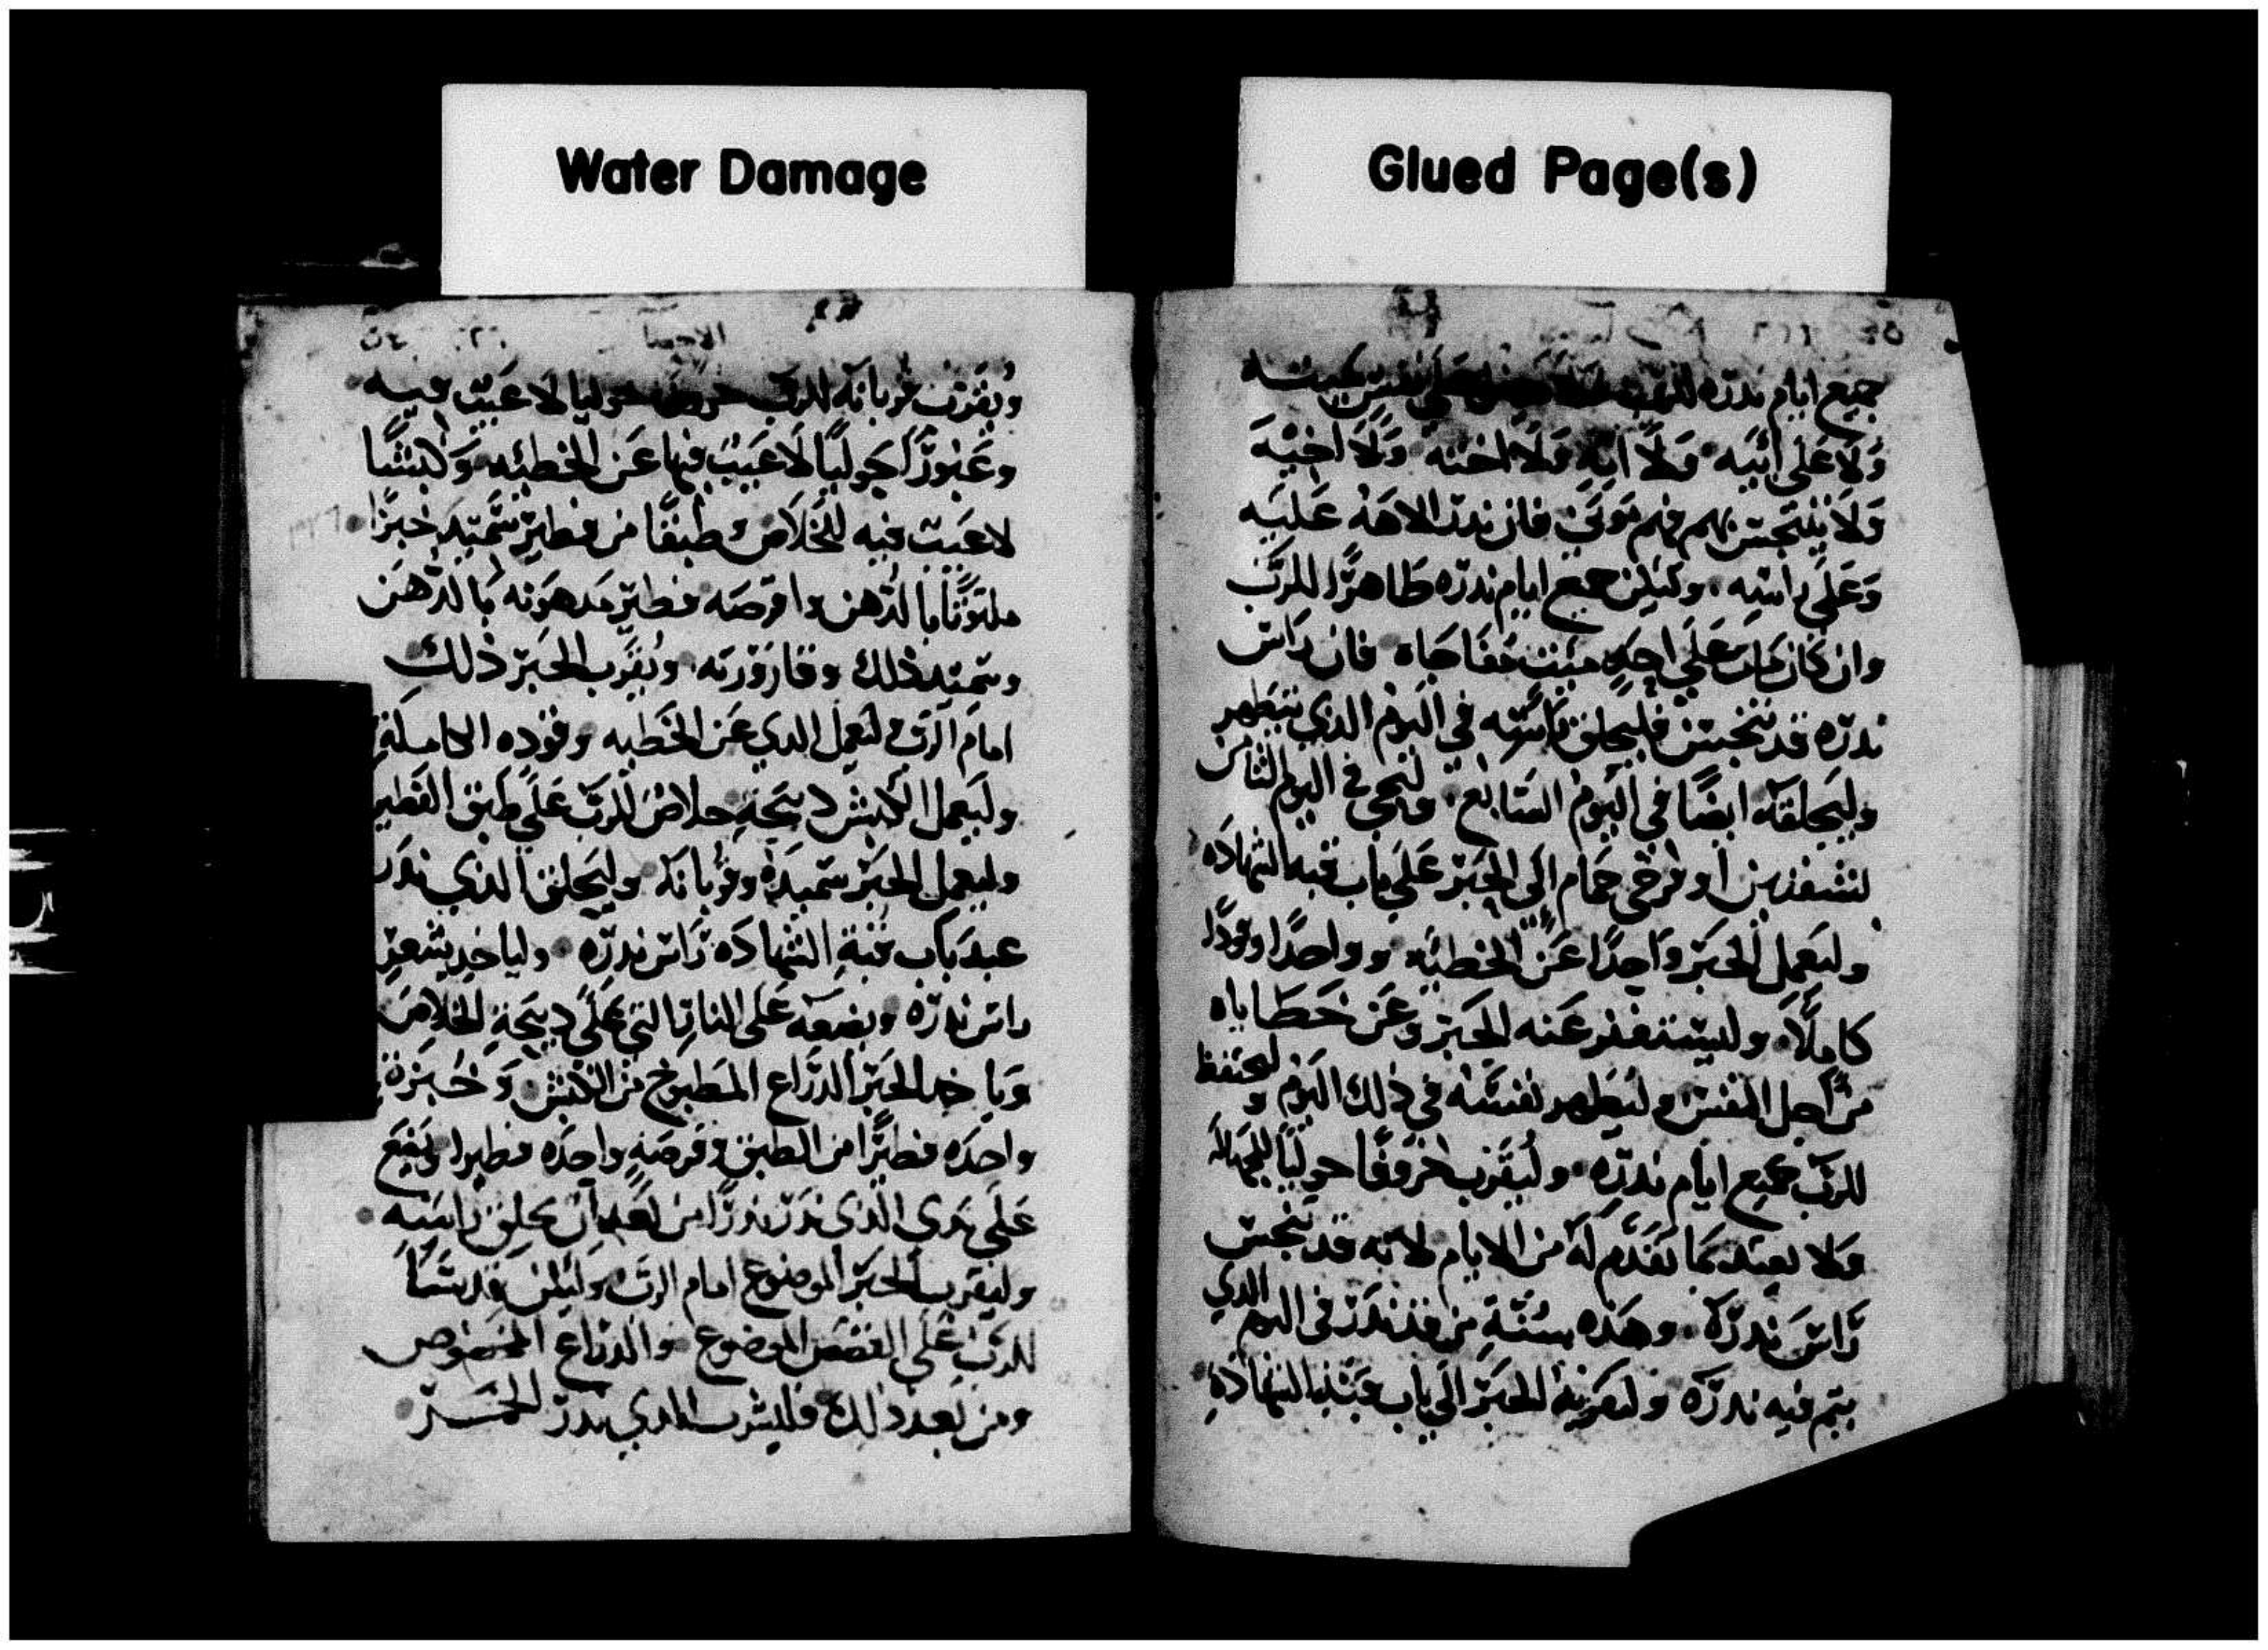 Water Damage
Glued Page(s)
جميع ايام ندره للرب
ولا على ابيه ولا امه ولا اخته ولا اخيه
ولا يتنجس بهم في موتي فان ندر الاهه عليه
وعلي راسه وليكن جميع ايام ندره طاهرًا للرب
وان كان مات علي احدٍ ميت مفاجاه فان راس
ندره قد تنجس فليحلق راسه في اليوم الذي يتطهر
وليحلقه ايضًا في اليوم السابع وليجي في اليوم الثامن
لشفنين او فرخي حمام الي الحبر علي باب قبه الشهاده
وليعمل الحبر واحدًا عن الخطيه وواحدًا وقودًا
كاملًا وليستغفر عنه الحبر وعن خطاياه
من اجل النفس وليطهر نفسه في ذلك اليوم وليحتفظ
للرب جميع ايام ندره وليقرب خروفًا حوليًا للجهاله
ولا يعتد بما تقدم له من الايام لانه قد تنجس
راس ندره وهذه سنة من قد ندر في اليوم الذي
يتم فيه ندره وليقربه الحبر الي باب قبة الشهاده
ويقرب قربانه للرب خروف حوليا لا عيب فيه
وعبورًا حوليًا لا عيب فيها عن الخطئه وكبشًا
لا عيب فيه للخلاص وطبقًا من فطير سميد خبزًا
ملتوتًا بالدهن واقرصه فطير مدهونه بالدهن
وسميد ذلك وقارورته ويقرب الحبر ذلك
امام الرب وليعمل الدي عن الخطيه وقوده الكامله
وليعمل الكبش دبيحة خلاص للرب علي طبق الفطير
وليعمل الحبر سميده وقربانه وليحلق الذي ندر
عند باب قبة الشهاده راس ندره ولياخد شعر
راس ندره ويضعه علي النار التي علي دبيحة الخلاص
وياخد الحبر الدراع المطبوخ من الكبش وخبزة
واحده فطيرًا من الطبق وقرصه واحده فطيرا ويضع
علي يدي الدي ندر ندرًا من بعد ان يحلق راسه
وليقرب الحبر الموضوع امام الرب وليكن قدسًا
للرب علي القصص الموضوع والدراع المخصوص
ومن بعد ذلك فليشرب الدي ندر الخمر